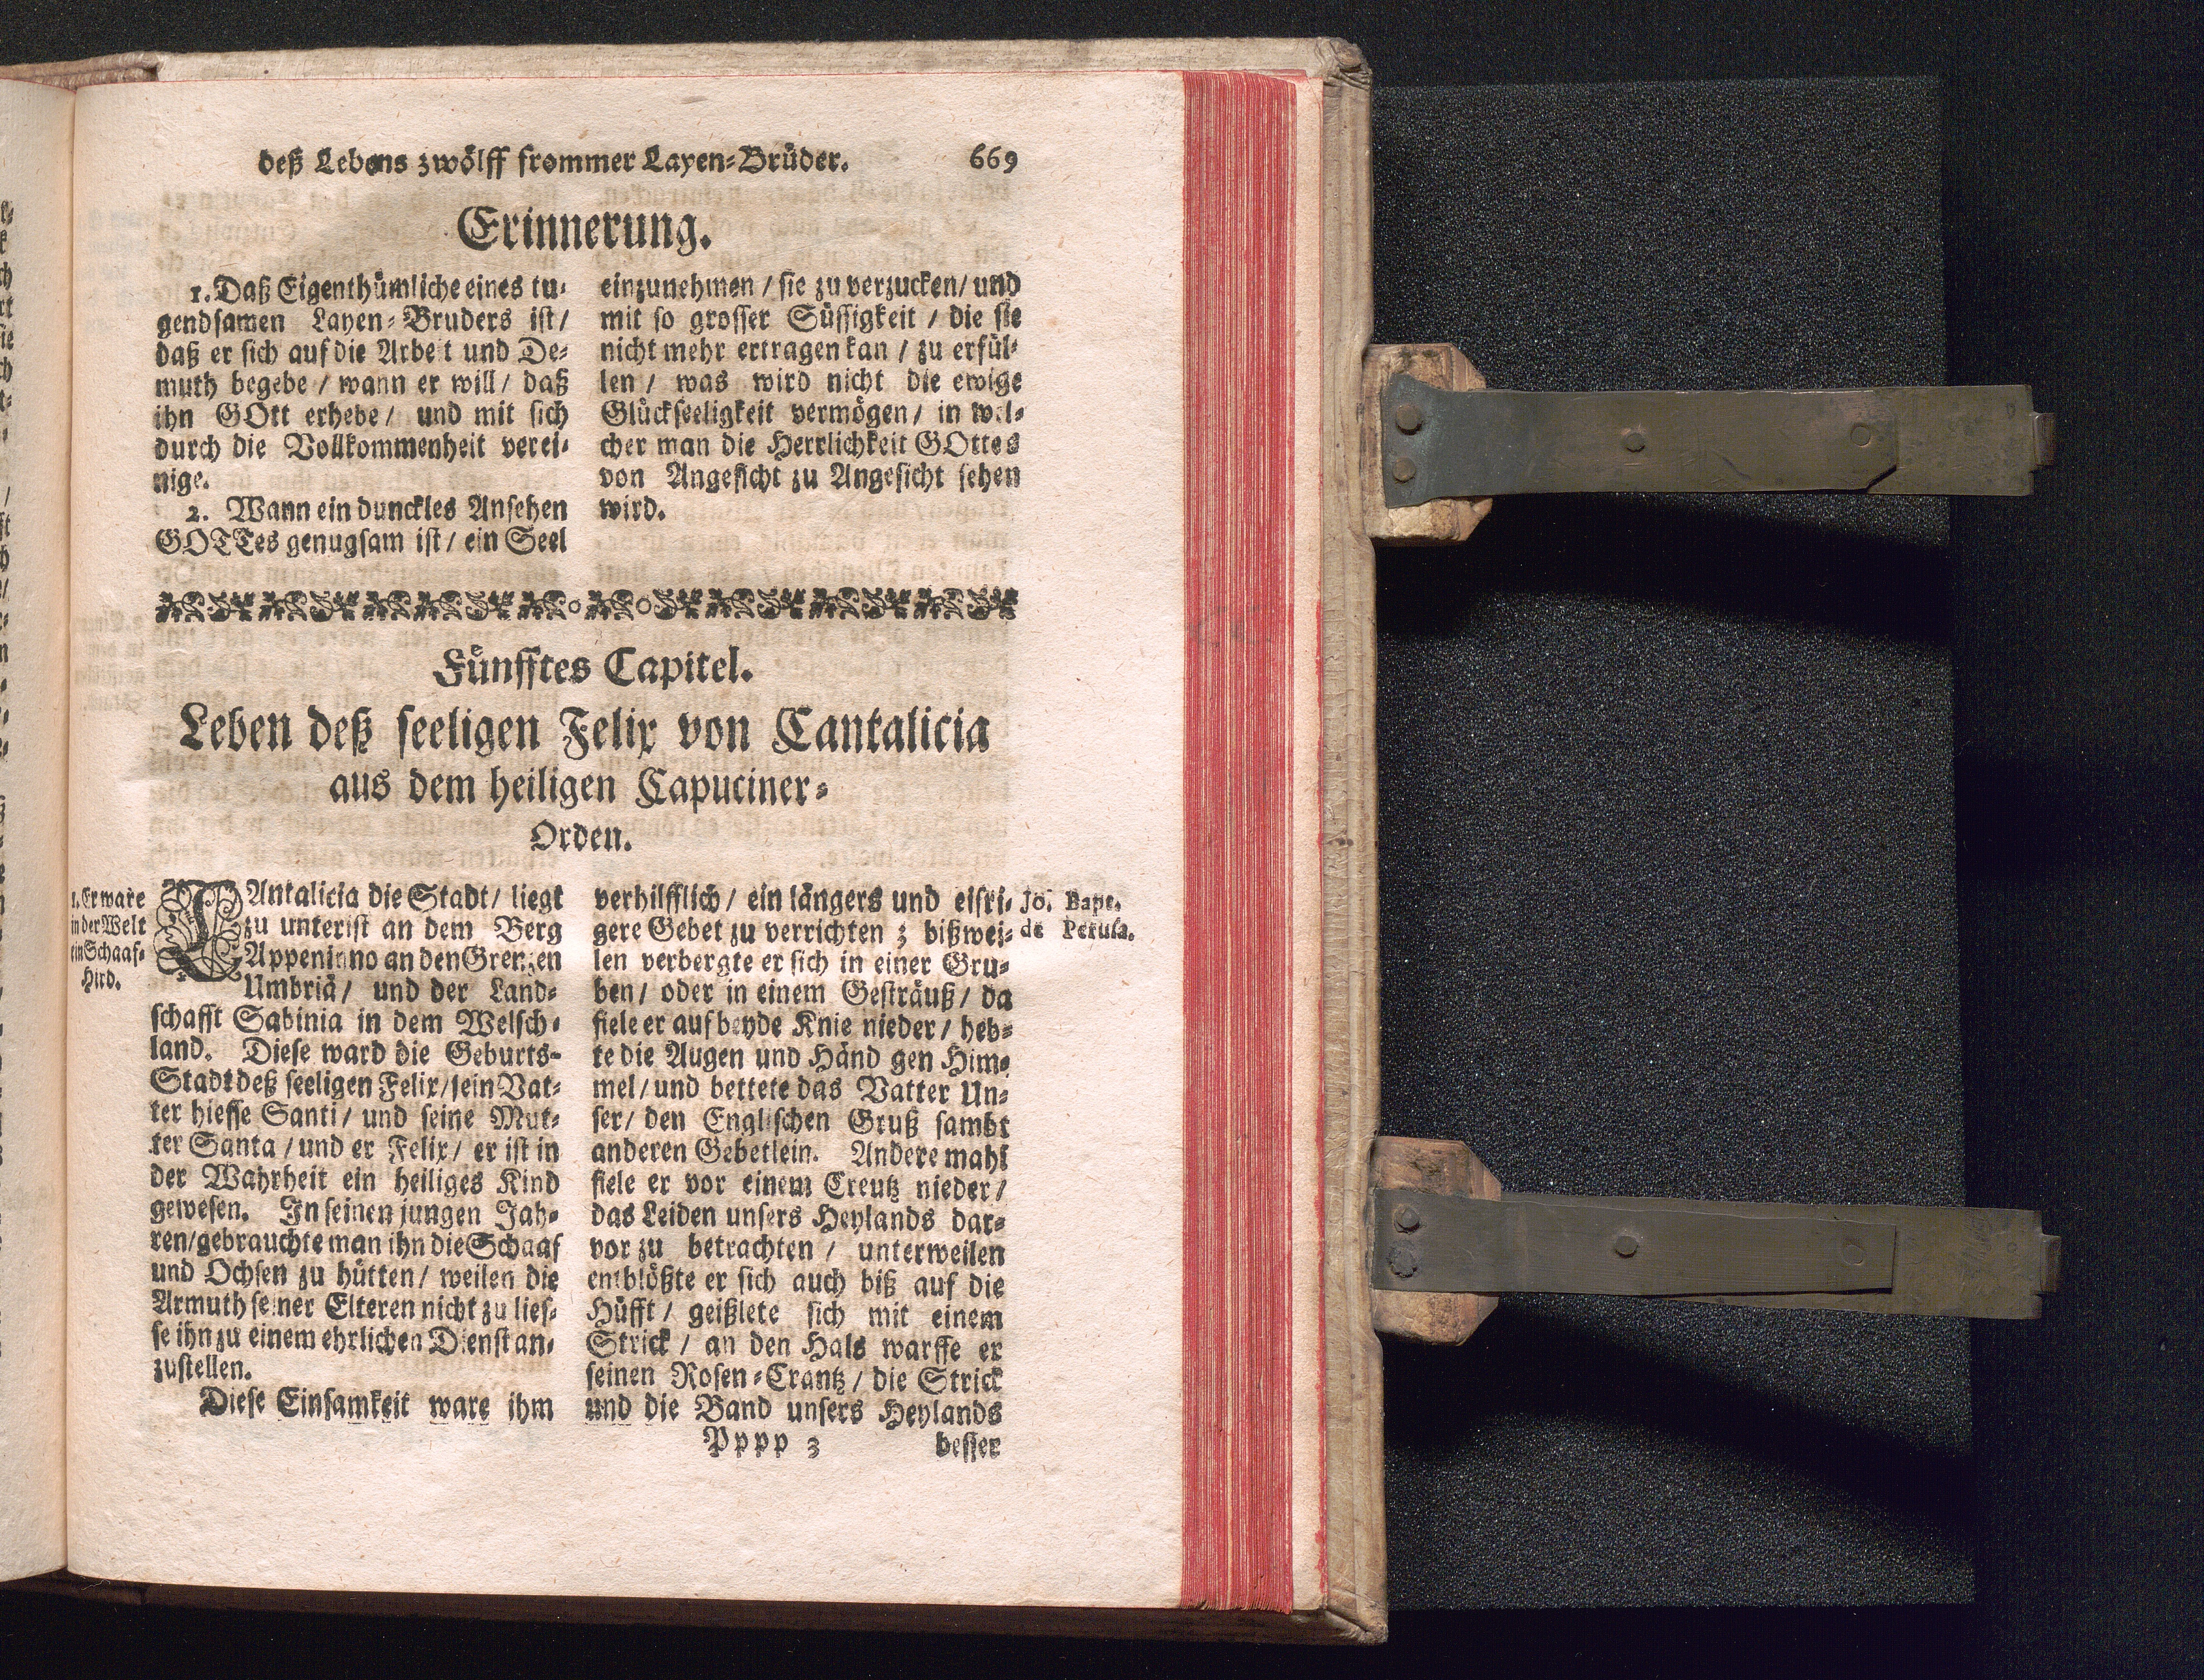 deß Lebens zwölff frommer Layen-Brüder. 669
Erinnerung.
1. Daß Eigenthümliche eines tu-
gendsamen Layen-Bruders ist/
daß er sich auf die Arbeit und De-
muth begebe / wann er will / daß
ihn GOtt erhebe / und mit sich
durch die Vollkommenheit verei-
nige.
2. Wann ein dunckles Ansehen
GOTTes genugsam ist / ein Seel
einzunehmen / sie zu verzucken / und
mit so grosser Süssigkeit / die sie
nicht mehr ertragen kan / zu erfül-
len / was wird nicht die ewige
Glückseeligkeit vermögen / in wel-
cher man die Herrlichkeit GOttes
von Angesicht zu Angesicht sehen
wird.
Fünfftes Capitel.
Leben deß seeligen Felix von Cantalicia
aus dem heiligen Capuciner-
Orden.
1. Er ware
in der Welt
ein Schaaf-
Hird.
CAntalicia die Stadt / liegt
zu unterist an dem Berg
Appeninno an den Grenzen
Umbriä / und der Land-
schafft Sabinia in dem Welsch-
land. Diese ward die Geburts-
Stadt deß seeligen Felix / sein Vat-
ter hiesse Santi / und seine Mut-
ter Santa / und er Felix / er ist in
der Wahrheit ein heiliges Kind
gewesen. In seinen jungen Jah-
ren / gebrauchte man ihn die Schaaf
und Ochsen zu hütten / weilen die
Armuth seiner Elteren nicht zu lies-
se ihn zu einem ehrlichen Dienst an-
zustellen.
Diese Einsamkeit ware ihm
verhilfflich / ein längers und eifri-
gere Gebet zu verrichten ; bißwei-
len verbergte er sich in einer Gru-
ben / oder in einem Gesträuß / da
fiele er auf beyde Knie nieder / heb-
te die Augen und Händ gen Him-
mel / und bettete das Vatter Un-
ser / den Englischen Gruß sambt
anderen Gebetlein. Andere mahl
fiele er vor einem Creutz nieder /
das Leiden unsers Heylands dar-
vor zu betrachten / unterweilen
entblößte er sich auch biß auf die
Hüfft / geißlete sich mit einem
Strick / an den Hals warffe er
seinen Rosen-Crantz / die Strick
und die Band unsers Heylands
Jo. Bapt.
de Perusa.
Pppp 3 besser